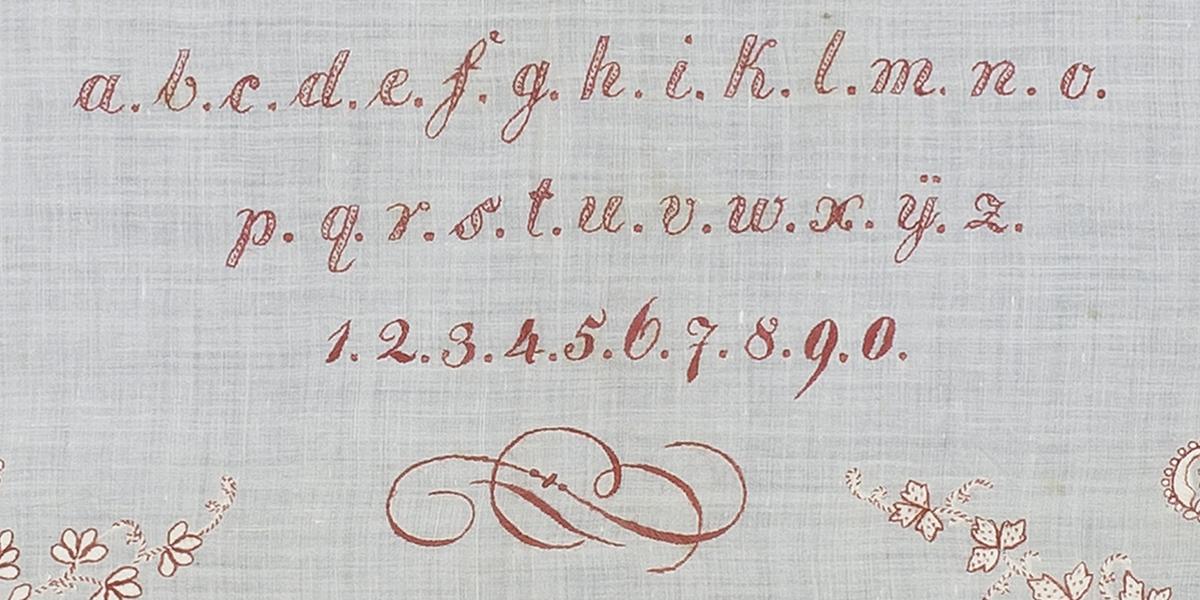 a. b. c. d. e. f. g. h. i. k. l. m. n. o.
p. q. r. s. t. u. v. w. x. ÿ. z.
1. 2. 3. 4. 5. 6. 7. 8. 9. 0.